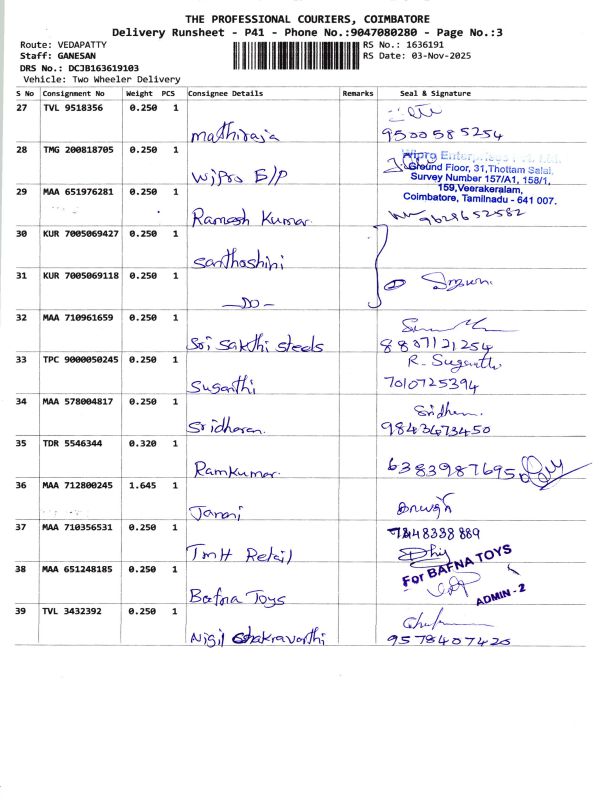 THE PROFESSIONAL COURIERS, COIMBATORE
Delivery Runsheet - P41 - Phone No.:9047080280 - Page No.:3
Route: VEDAPATTY
RS No.: 1636191
Staff: GANESAN
RS Date: 03-Nov-2025
DRS No.: DCJB163619103
Vehicle: Two Wheeler Delivery
S No Consignment No Weight PCS Consignee Details Remarks Seal & Signature
27 TVL 9518356 0.250 1
Mathiraja 9500585254
28 TMG 200818705 0.250 1
Wipro E/P
Ground Floor, 31,Thottam Salai,
Survey Number 157/A1, 158/1,
159,Veerakeralam,
Coimbatore, Tamilnadu - 641 007.
29 MAA 651976281 0.250 1
Ramesh Kumar 9628652582
30 KUR 7005069427 0.250 1
Santhoshini
31 KUR 7005069118 0.250 1
-DO-
32 MAA 710961659 0.250 1
Sri Sakthi Steels 8807121254
33 TPC 9000050245 0.250 1 R. Suganthi
Suganthi 7010725394
34 MAA 578004817 0.250 1 Sridharan
Sridharan 9843673450
35 TDR 5546344 0.320 1
Ramkumar 6383987695
36 MAA 712800245 1.645 1
Janani
37 MAA 710356531 0.250 1 8338889
TMH Retail
38 MAA 651248185 0.250 1
For BAFNA TOYS
ADMIN - 2
Bafna Toys
39 TVL 3432392 0.250 1
Nigil Chakravarthi 9578407420